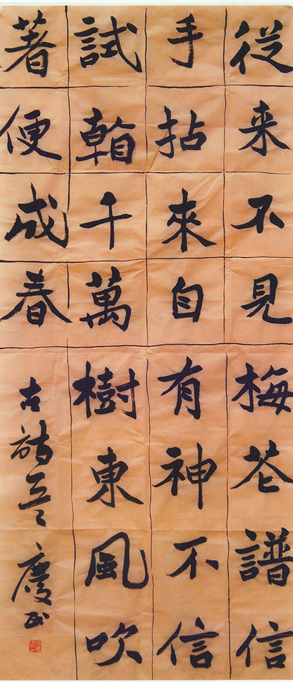 從来不見梅花譜信
手拈來自有神不信
試翰千萬樹東風吹
著便成春